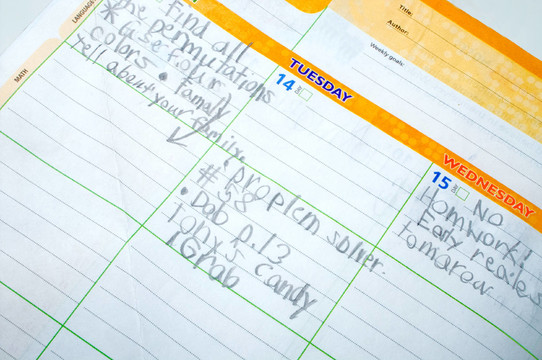 LANGUAGE
MATH
Find all
the permutations
* use four
colors • Family
Tell about your family.
14
TUESDAY
1 problem solver.
#58
• Dab p.13
Tony's Candy
Grab
Title:
Author:
Weekly goals:
15
WEDNESDAY
No
Homwork!
Early
tomarow